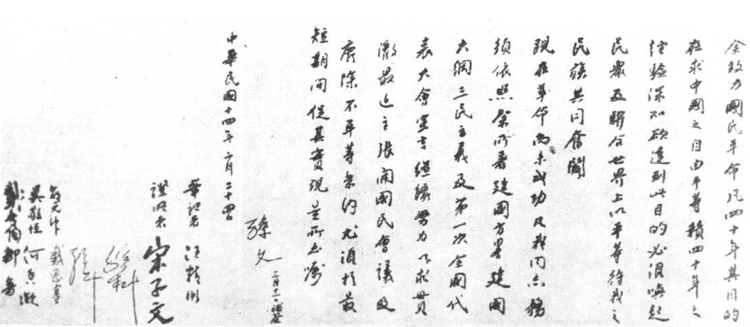 余致力國民革命凡四十年其目的
在求中國之自由平等積四十年之
經驗深知欲達到此目的必須喚起
民眾及聯合世界上以平等待我之
民族共同奮鬪
現在革命尚未成功凡我同志務
須依照余所著建國方畧建國
大綱三民主義及第一次全國代
表大會宣言繼續努力以求貫
澈最近主張開國民會議及
廢除不平等條約尤須於最
短期間促其實現是所至囑
孫文 二月二十四日補簽
中華民國十四年二月二十四日
筆記者 汪精衛
證明者 宋子文
孫科
戴恩賽
吳敬恆 何香凝
戴季陶 鄒魯